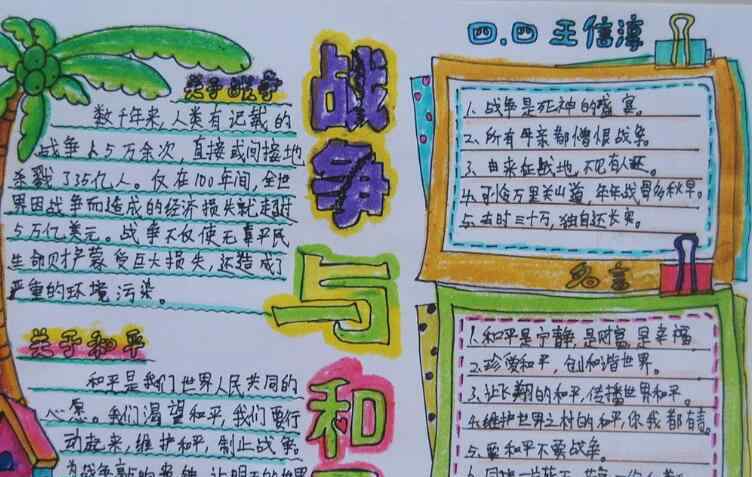 关于战争
数千年来,人类有记载的
战争上5万余次,直接或间接地
杀戮了35亿人。仅在100年间,全世
界因战争而造成的经济损失就超过
5万亿美元。战争不仅使无辜平民
生命财产蒙受巨大损失,还造成了
严重的环境污染。
关于和平
和平是我们世界人民共同的
心愿。我们渴望和平,我们要行
动起来,维护和平,制止战争。
战争与和
四.四 王信淳
1.战争是死神的盛宴。
2.所有母亲都憎恨战争。
3.由来征战地,不见有人还。
4.可怜万里关山道,年年战骨多秋草。
5.去时三十万,独自还长安。
名言
1.和平是宁静,是财富,是幸福
2.珍爱和平,创和谐世界。
3.让飞翔的和平,传播世界和平。
4.维护世界之村的和平,你我都有责。
5.要和平不要战争。